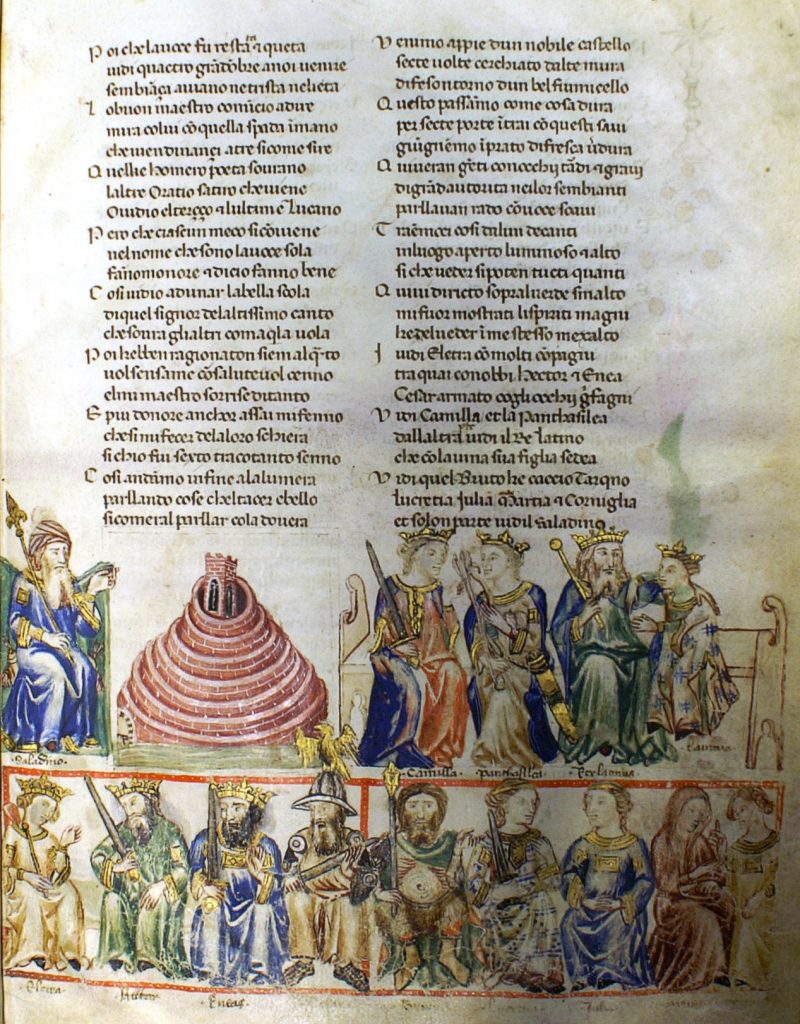 Poi che lauoce fu restata ⁊ queta
uidi quattro grādōbre anoi uenire
sembiāça auiano netrista nelieta
Lobuon maestro comīcio adire
mira colui cō quella spada īmano
che uien dinançi atre sicome sire
Quellie homero poeta sourano
laltre Oratio satiro che uiene
Ouidio elterço ⁊ lultimo Lucano
Pero che ciascun meco si cōuiene
nel nome che sono lauoce sola
fannomi honore ⁊ dicio fanno bene
Cosi uidio adunar labella scola
di quel signor delaltissimo canto
che soura glialtri comaqla uola
Poi hebben ragionaton siem alqto
uolsensame cō saluteuol cenno
elmi maestro sorrise ditanto
E piu donore anchor assai mi fenno
chesi mi fecer delaloro schiera
si chio fui sexto tracotanto senno
Cosi andāmo infine alalumera
parllando cose cheltacer ebello
sicomeral parllar cola douera
Venimo appie dun nobile castello
secte uolte cerchiato dalte mura
difeso ntorno dun bel fiumicello
Questo passāmo come cosa dura
per secte porte ītrai cō questi saui
giūgnēmo ī prato difresca uerdura
Quiueran gēti con occhij tādi ⁊ graui
digrād autorita neilor sembianti
parllauan rado cō uoce soaui
Traemoci cosi dalun decanti
inluogo aperto luminoso ⁊ alto
si che ueder si poten tucti quanti
Quiui diricto sopraluerde smalto
mi fuor mostrati lispiriti magni
hedeluedere ī me stesso mexalto
Iuidi Eletra cō molti cōpagni
tra quai conobbi Hector ⁊ Enea
Cesar armato cogli occhij grifagni
Vidi Camilla et la Panthasilea
dallaltra uidi il Re Latino
che cō lauina sua figlia sedea
Vidi quel Bruto he caccio Tarqno
Lucretia Iulia Martia ⁊ Corniglia
et solon parte uidil Saladino
Saladino
Camilla
panthasilea
Re latinus
Lauina
Eletra
Hector
Eneas